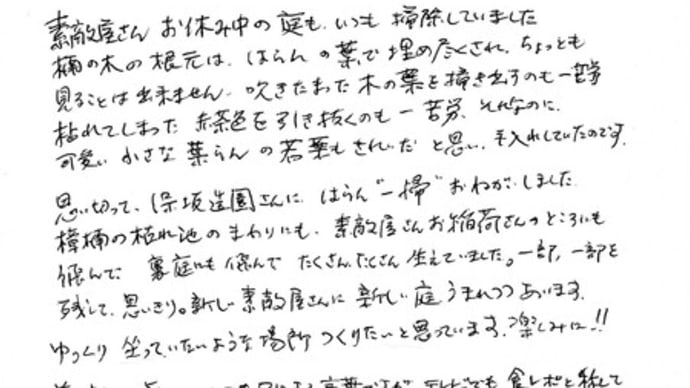 素敵屋さん お休み中の庭も、いつも掃除していました
楠の木の根元は、はらんの葉で埋め尽くされ、ちょっとも
見ることは出来ません。吹きたまった木の葉を掻き出すのも一苦労
枯れてしまった茶色を引き抜くのも一苦労、それなのに、
可愛い小さな葉らんの若葉もきれいだと思い、手入れしていたのです。
思い切って、保坂造園さんに、はらん"一掃"おねがいしました。
樟楠の枯れ池のまわりにも、素敵屋さんお稲荷さんのところにも
飛んで、裏庭にも飛んで たくさん、たくさん生えていました。一部、一部を
残して、思いきり。新しい素敵屋さんに新しい庭うまれつつあります。
ゆっくり坐っていたいような場所つくりたいと思っています。楽しみに!!